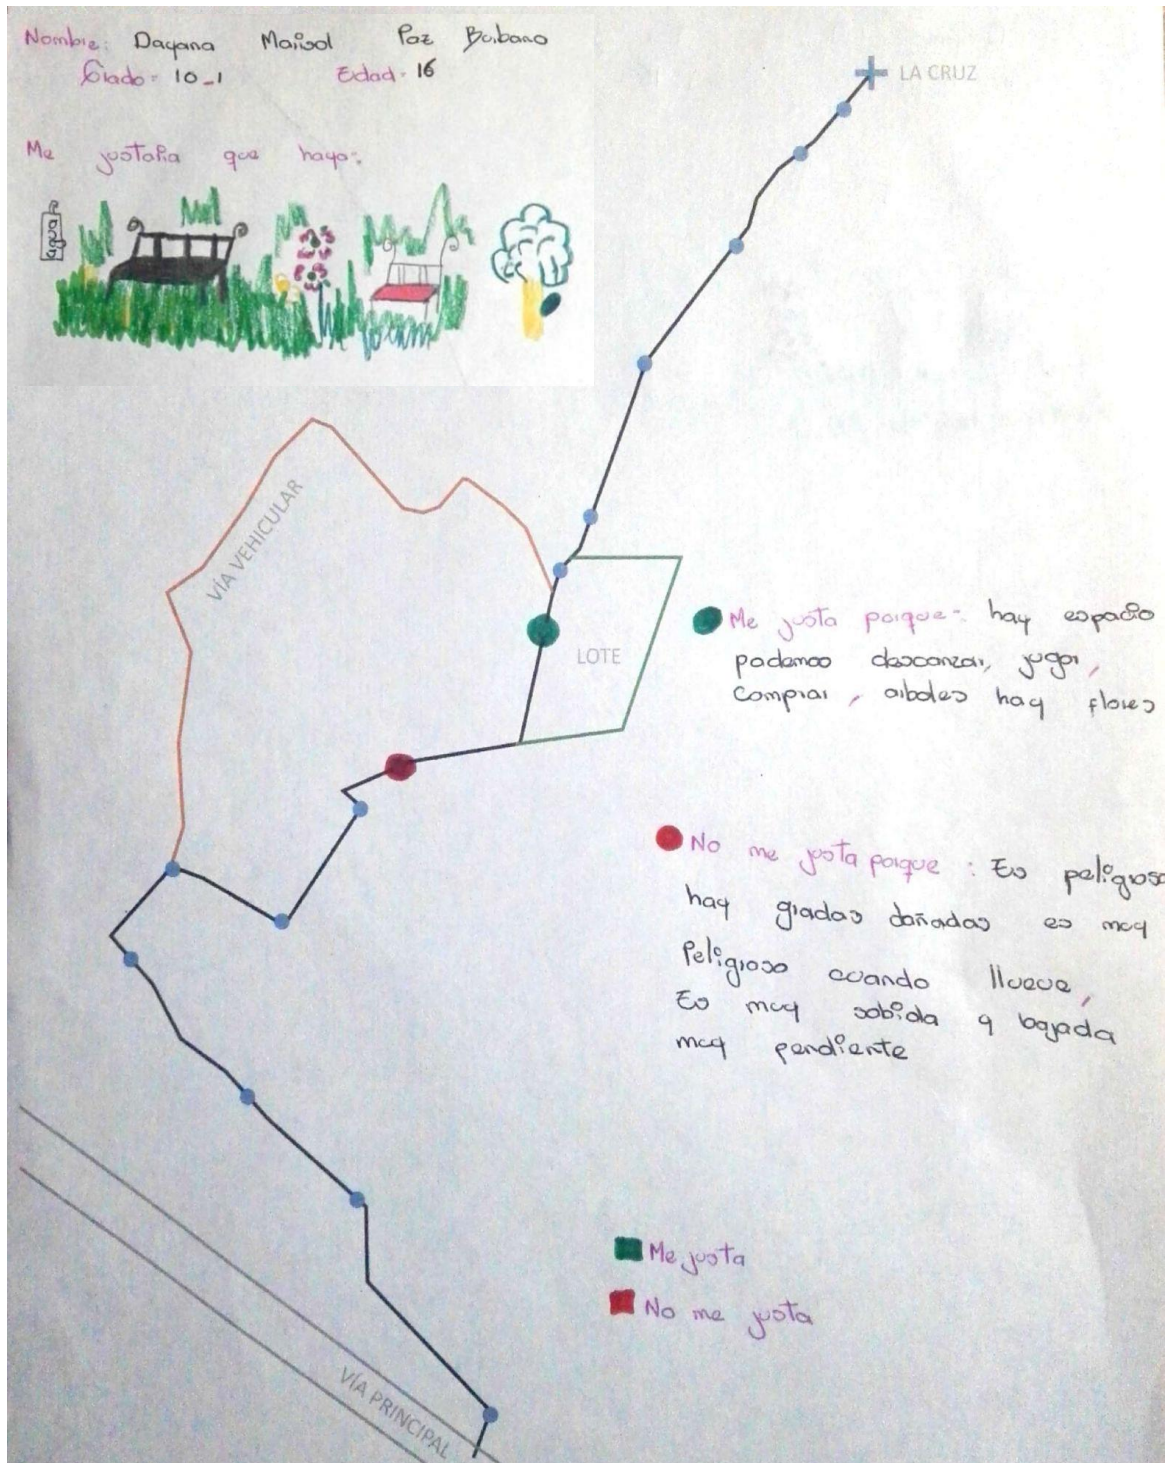 Nombre: Dayana Marisol Paz Burbano
Grado = 10-1 Edad = 16
LA CRUZ
Me justaria que haya:
agua
VÍA VEHICULAR
LOTE
Me justa porque: hay espacio
podemos descanzar, jugar,
comprar, arboles hay flores
No me justa porque: Es peligroso
hay gradas dañadas es muy
Peligroso cuando llueve,
Es muy subida y bajada
muy pendiente
Me justa
No me justa
VÍA PRINCIPAL